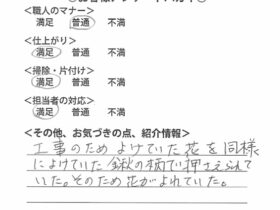 <職人のマナー>
満足 普通 不満
<仕上がり>
満足 普通 不満
<掃除・片付け>
満足 普通 不満
<担当者の対応>
満足 普通 不満
<その他、お気づきの点、紹介情報>
工事のためよけていた花を同様
によけていた鍬の柄で押さえられて
いた。そのため花がよれていた。